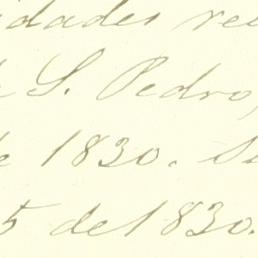 idades re
S. Pedro,
de 1830. Su
5 de 1830.